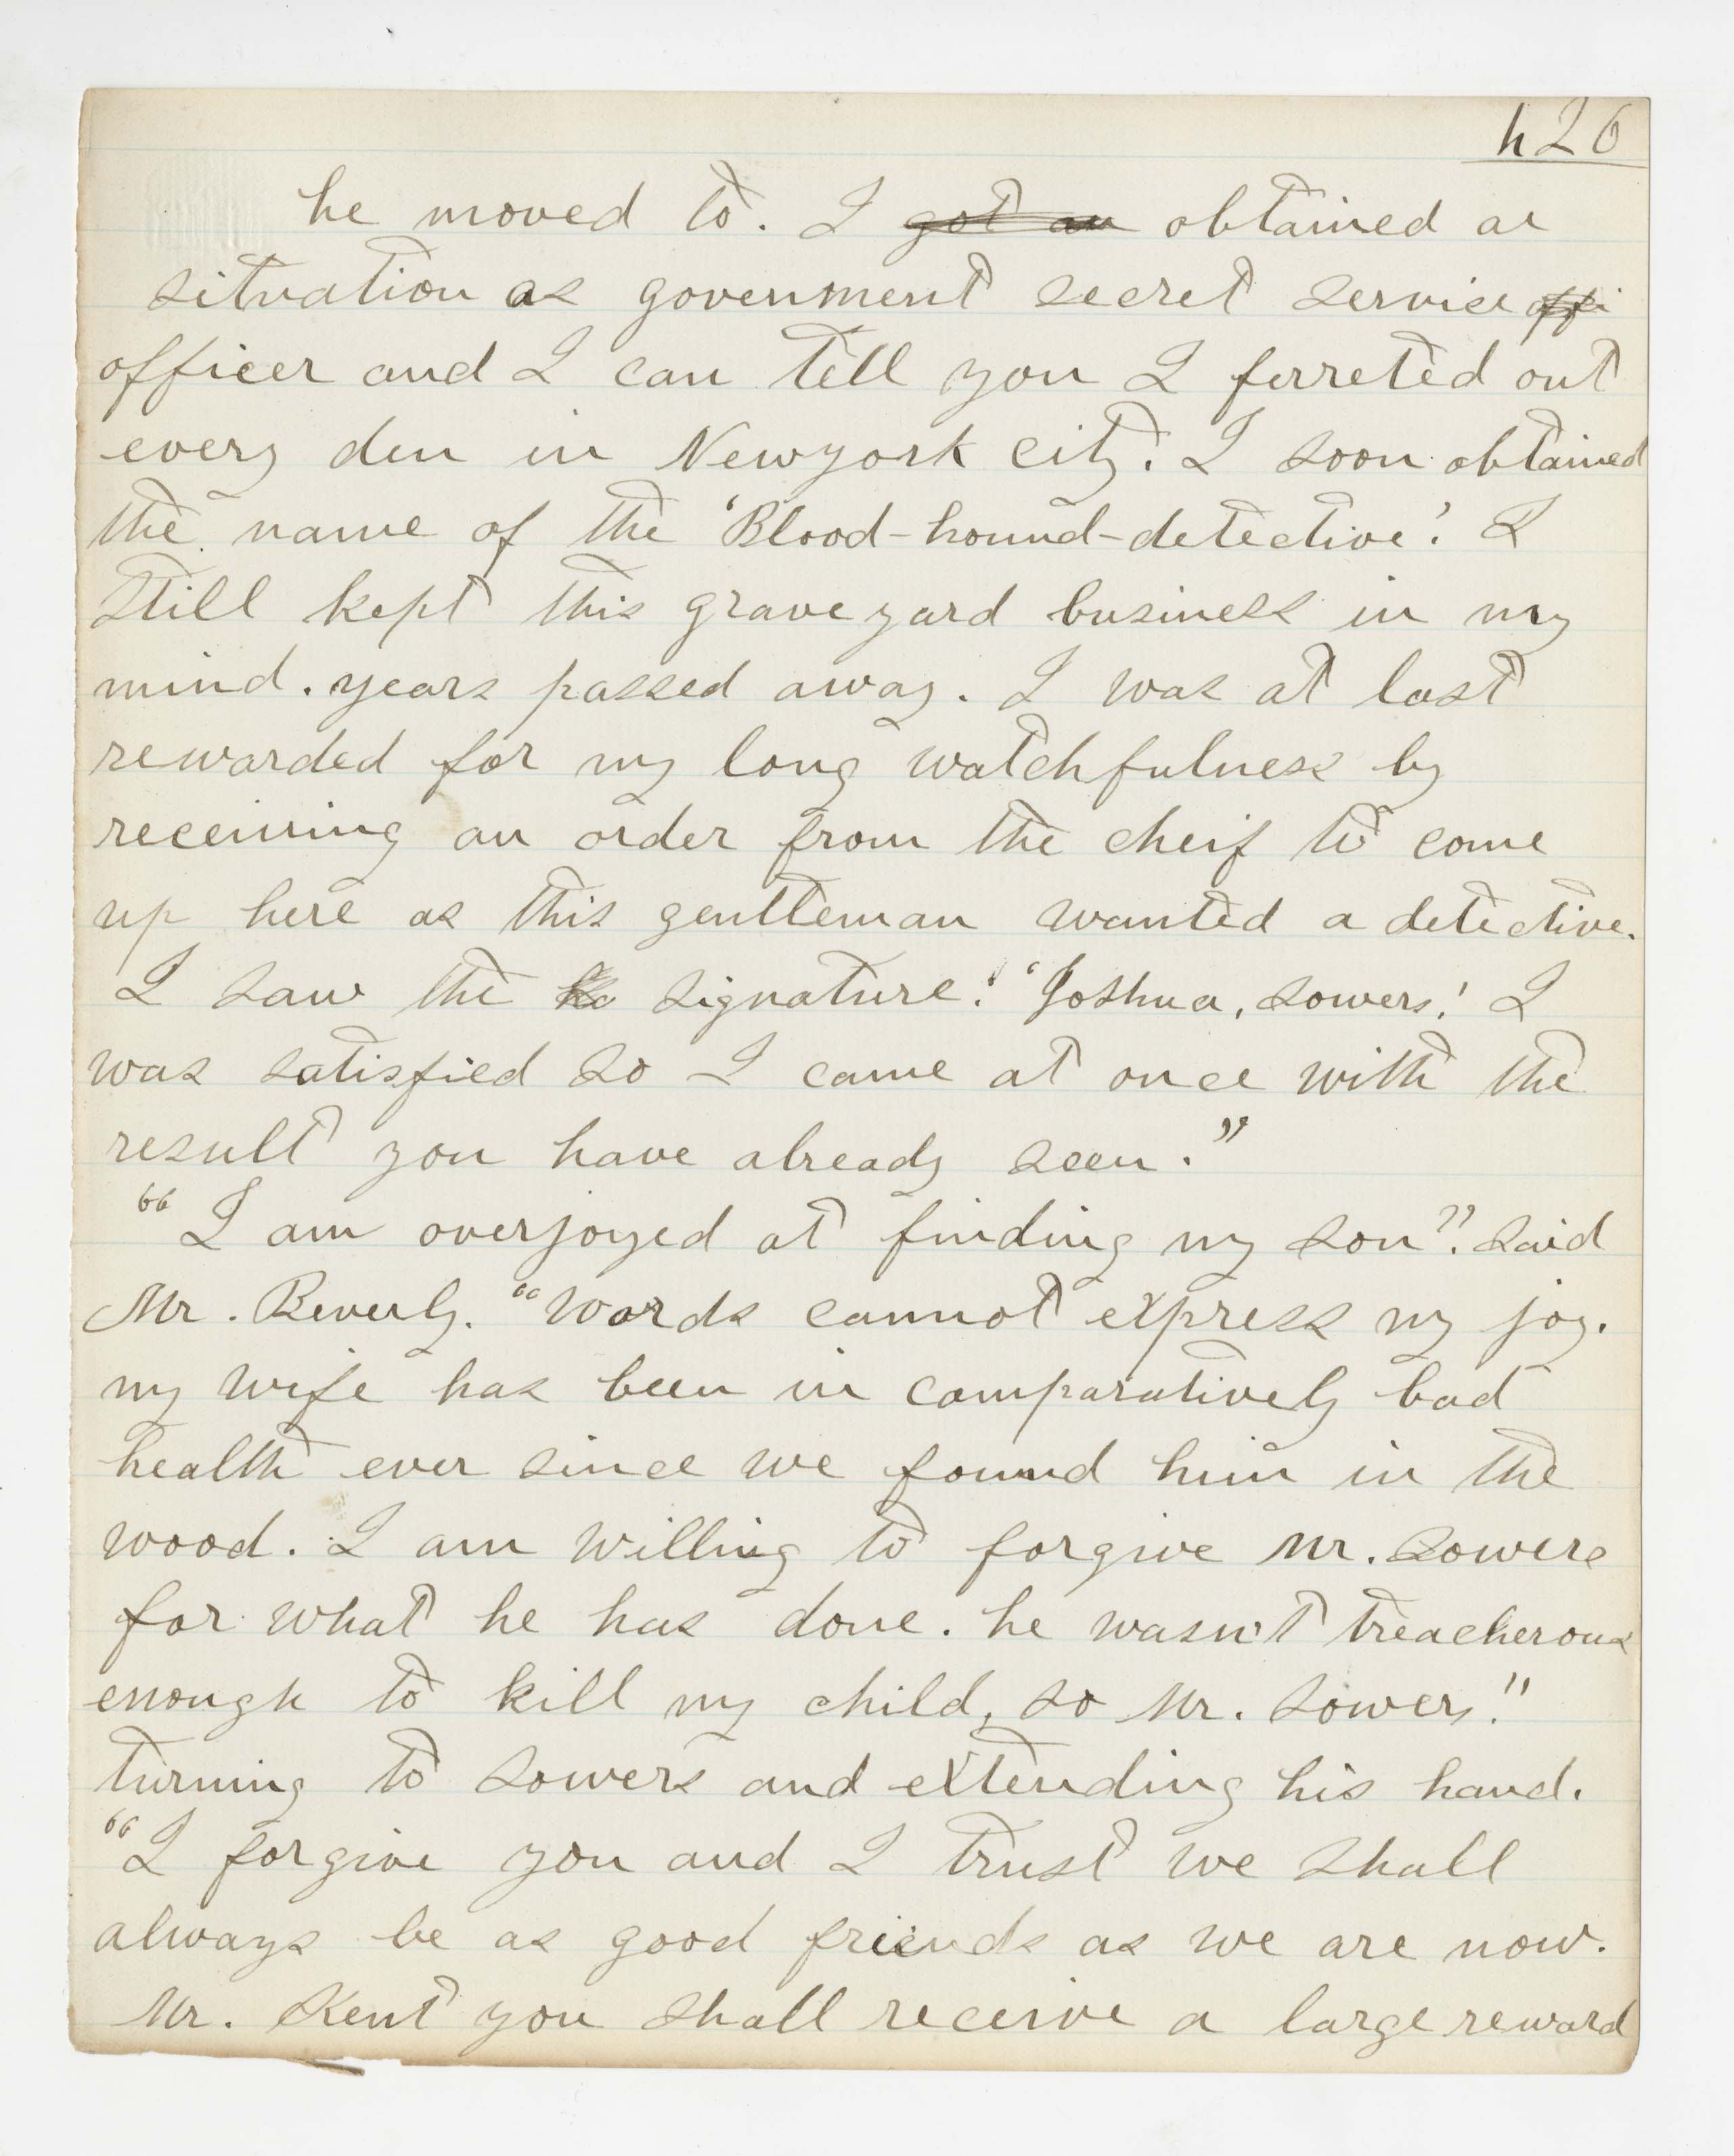 h26
he moved to. I got an obtained a
situation as govenment secret service offi
officer and I can tell you I ferreted out
every den in Newyork city. I soon obtained
the name of the 'Blood-hound-detective'. I
still kept this grave yard business in my
mind. years passed away. I was at last
rewarded for my long watchfulness by
receiving an order from the cheif to come
up here as this gentleman wanted a detective.
I saw the signature. 'Joshua, Sowers'. I
was satisfied so I came at once with the
result you have already seen."
"I am overjoyed at finding my son". said
Mr. Beverly. "Words cannot express my joy.
my wife has been in comparatively bad
health ever since we found him in the
wood. I am willing to forgive Mr. Sowers
for what he has done. he wasn't treacherous
enough to kill my child, so Mr. Sowers."
turning to Sowers and extending his hand.
"I forgive you and I trust we shall
always be as good friends as we are now.
Mr. Kent you shall receive a large reward